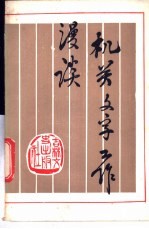 机关文字工作
漫谈